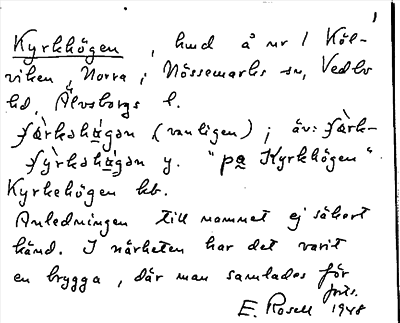 1
Kyrkhögen, hmd å nr 1 Köl-
viken, Norra, i Nössemarks sn, Vedbo
hd, Älvsborgs l.
(vanligen); äv:
y. "på Kyrkhögen".
Kyrkehögen kb.
Anledningen till namnet ej säkert
känd. I närheten har det varit
en brygga, där man samlades för
forts.
E. Rosell 1948